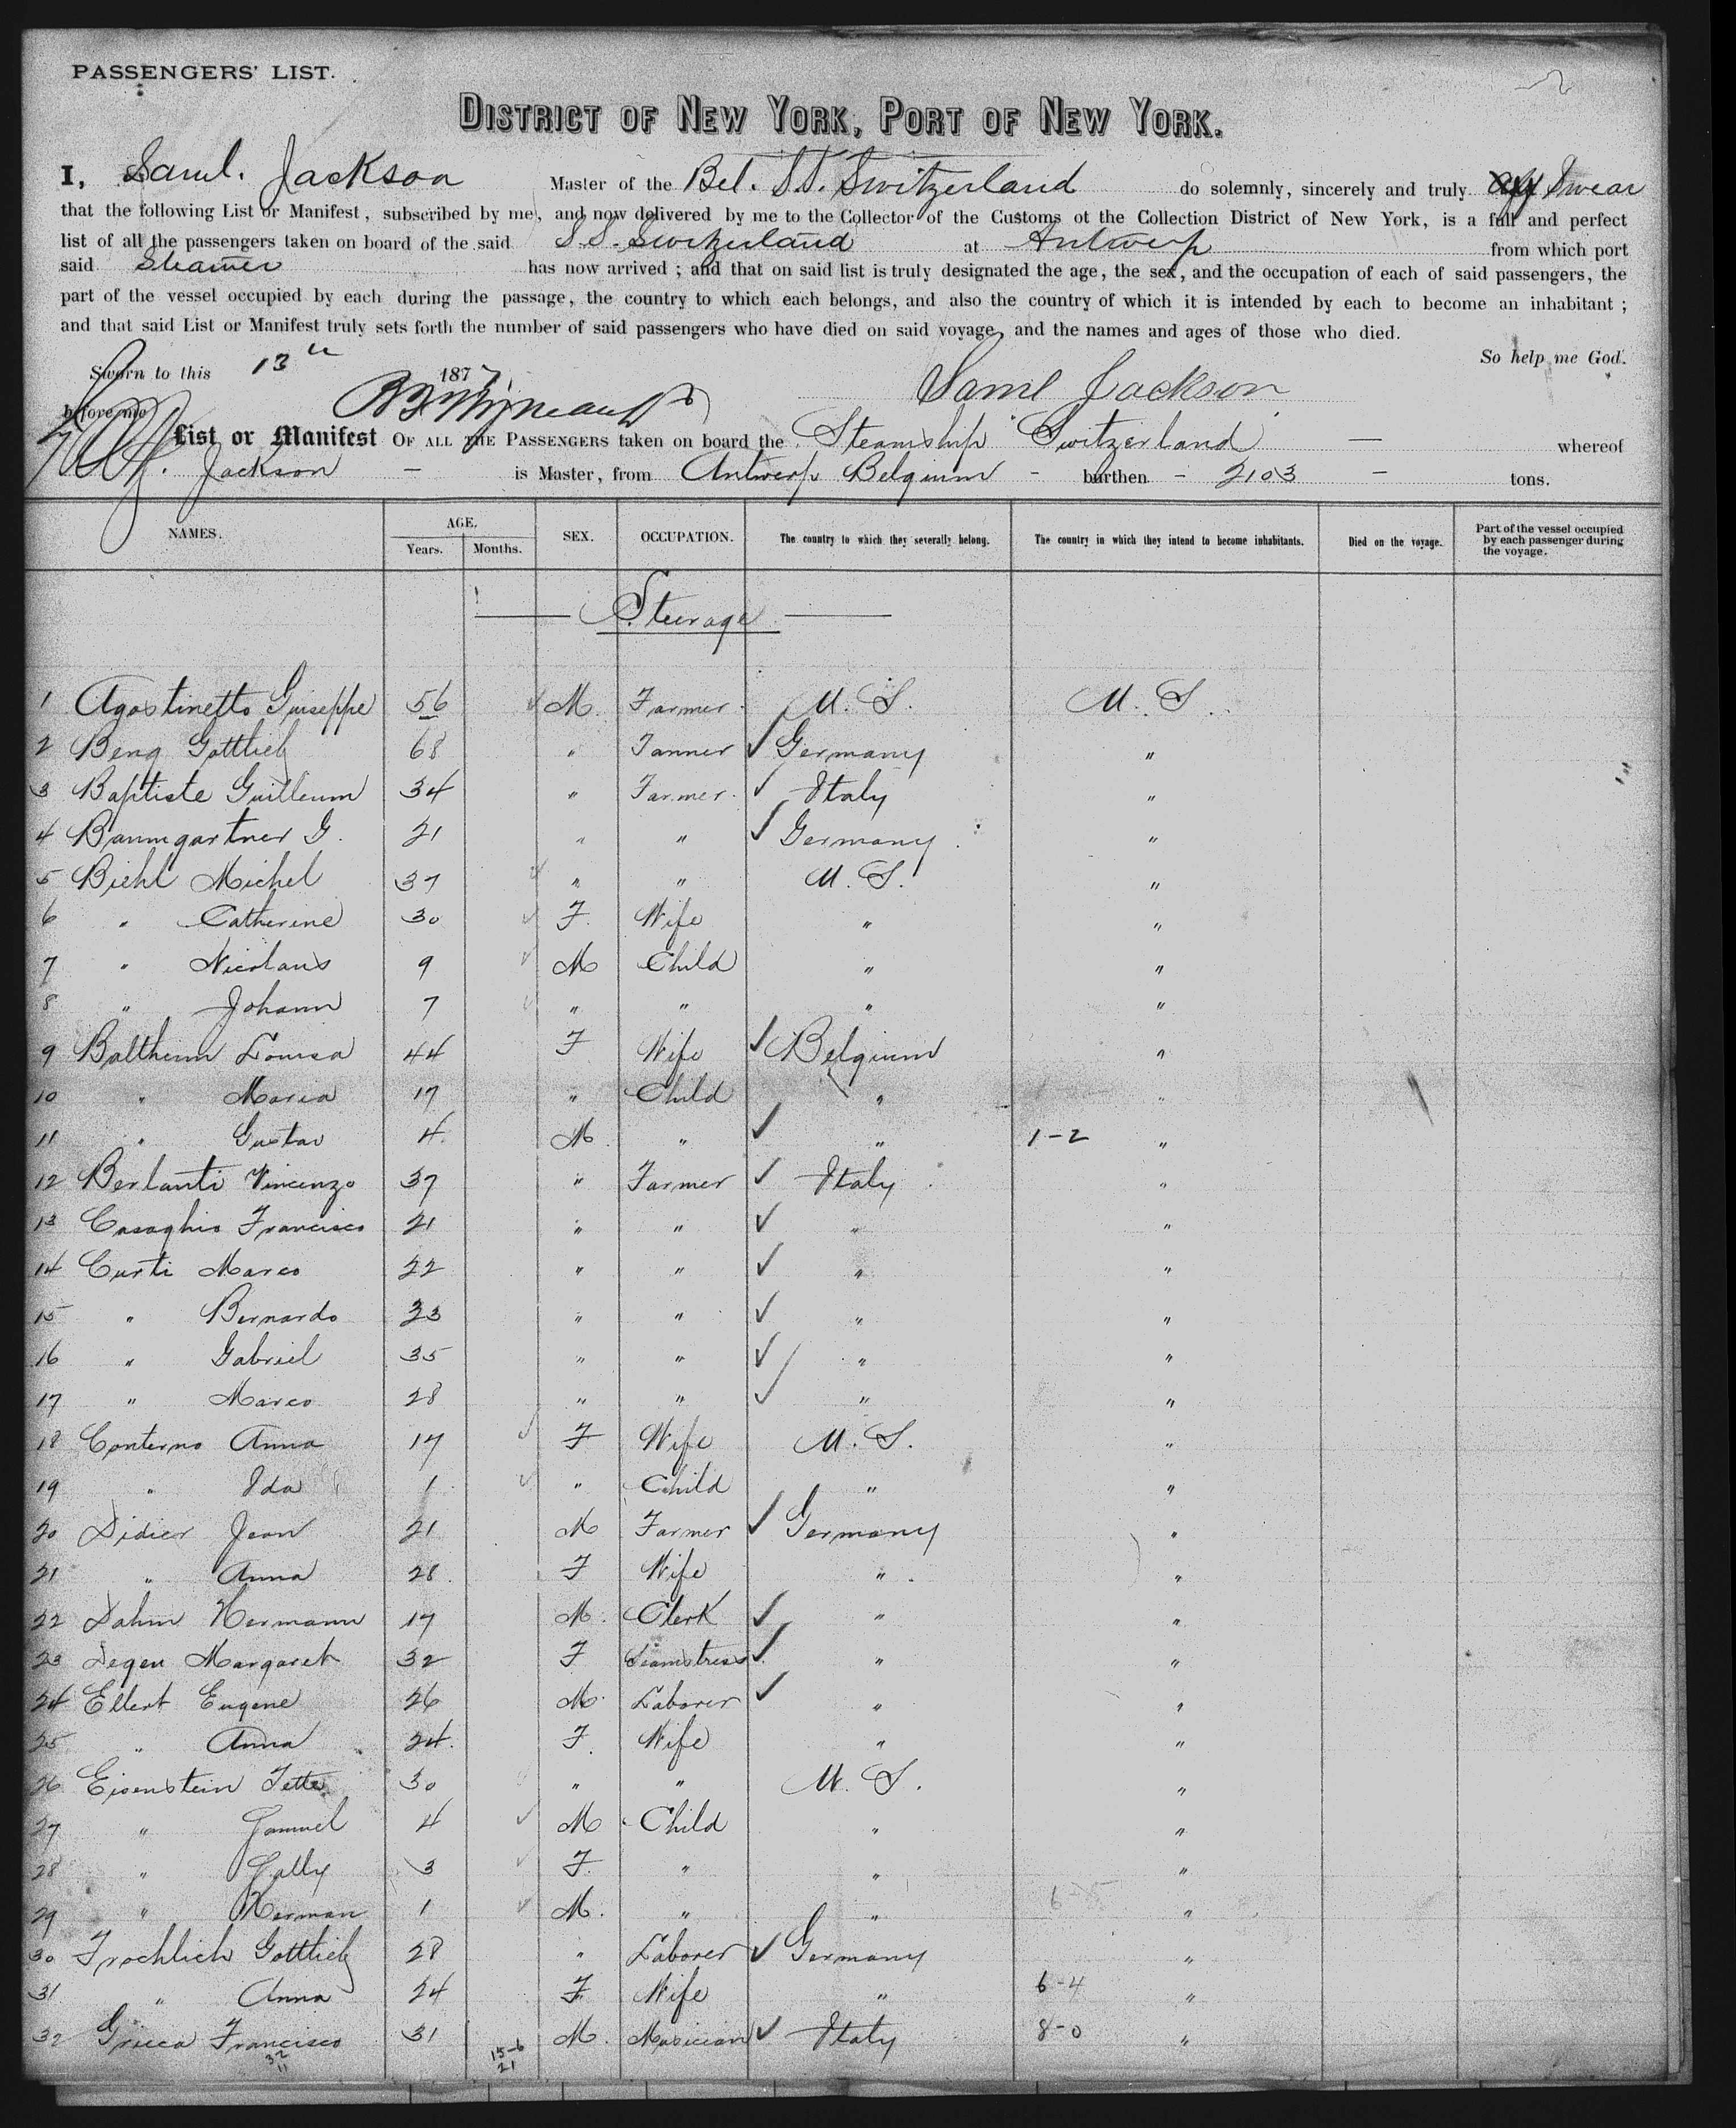 PASSENGERS' LIST.
DISTRICT OF NEW YORK, PORT OF NEW YORK.
I, Saml. Jackson Master of the Bel. S.S. Switzerland do solemnly, sincerely and truly aff Swear
that the following List or Manifest, subscribed by me, and now delivered by me to the Collector of the Customs ot the Collection District of New York, is a full and perfect
list of all the passengers taken on board of the said S.S. Switzerland at Antwerp from which port
said Steamer has now arrived; and that on said list is truly designated the age, the sex, and the occupation of each of said passengers, the
part of the vessel occupied by each during the passage, the country to which each belongs, and also the country of which it is intended by each to become an inhabitant;
and that said List or Manifest truly sets forth the number of said passengers who have died on said voyage, and the names and ages of those who died.
So help me God.
Sworn to this 13th 1877
before me
Saml Jackson
List or Manifest OF ALL THE PASSENGERS taken on board the Steamship Switzerland — whereof
Jackson — is Master, from Antwerp Belgium - burthen - 2103 - tons.
NAMES. AGE. Years. Months. SEX. OCCUPATION. The country to which they severally belong. The country in which they intend to become inhabitants. Died on the voyage. Part of the vessel occupied by each passenger during the voyage.
Steerage
1 Agostinetto Guiseppe 56 M. Farmer U. S. U. S.
2 Beng Gottlieb 68 " Tanner Germany "
3 Baptiste Guilleum 34 " Farmer Italy "
4 Baumgartner G. 21 " " Germany "
5 Biehl Michel 37 " " U. S. "
6 " Catherine 30 F. Wife " "
7 " Nicolaus 9 M Child " "
8 " Johann 7 " " " "
9 Balthum Louisa 44 F Wife Belgium "
10 " Maria 17 " Child " "
11 " Gustav 4 M. " " 1-2 "
12 Berlanti Vincenzo 37 " Farmer Italy "
13 Casaghio Francisco 21 " " " "
14 Curti Marco 22 " " " "
15 " Bernardo 23 " " " "
16 " Gabriel 35 " " " "
17 " Marco 28 " " " "
18 Conterno Anna 17 F Wife U. S. "
19 " Ida 1 " Child " "
20 Didier Jean 21 M Farmer Germany "
21 " Anna 28 F Wife " "
22 Dahm Hermann 17 M. Clerk " "
23 Degen Margaret 32 F Seamstress " "
24 Ellert Eugene 26 M. Laborer " "
25 " Anna 24 F. Wife " "
26 Eisenstein Jette 30 " " U. S. "
27 " Samuel 4 M Child " "
28 " Sally 3 F. " " "
29 " Herman 1 M. " " "
30 Froehlich Gottlieb 28 " Laborer Germany "
31 " Anna 24 F. Wife " 6-4 "
32 Grieca Francisco 31 M. Musician Italy 8-0 "
32
11
15-6
21